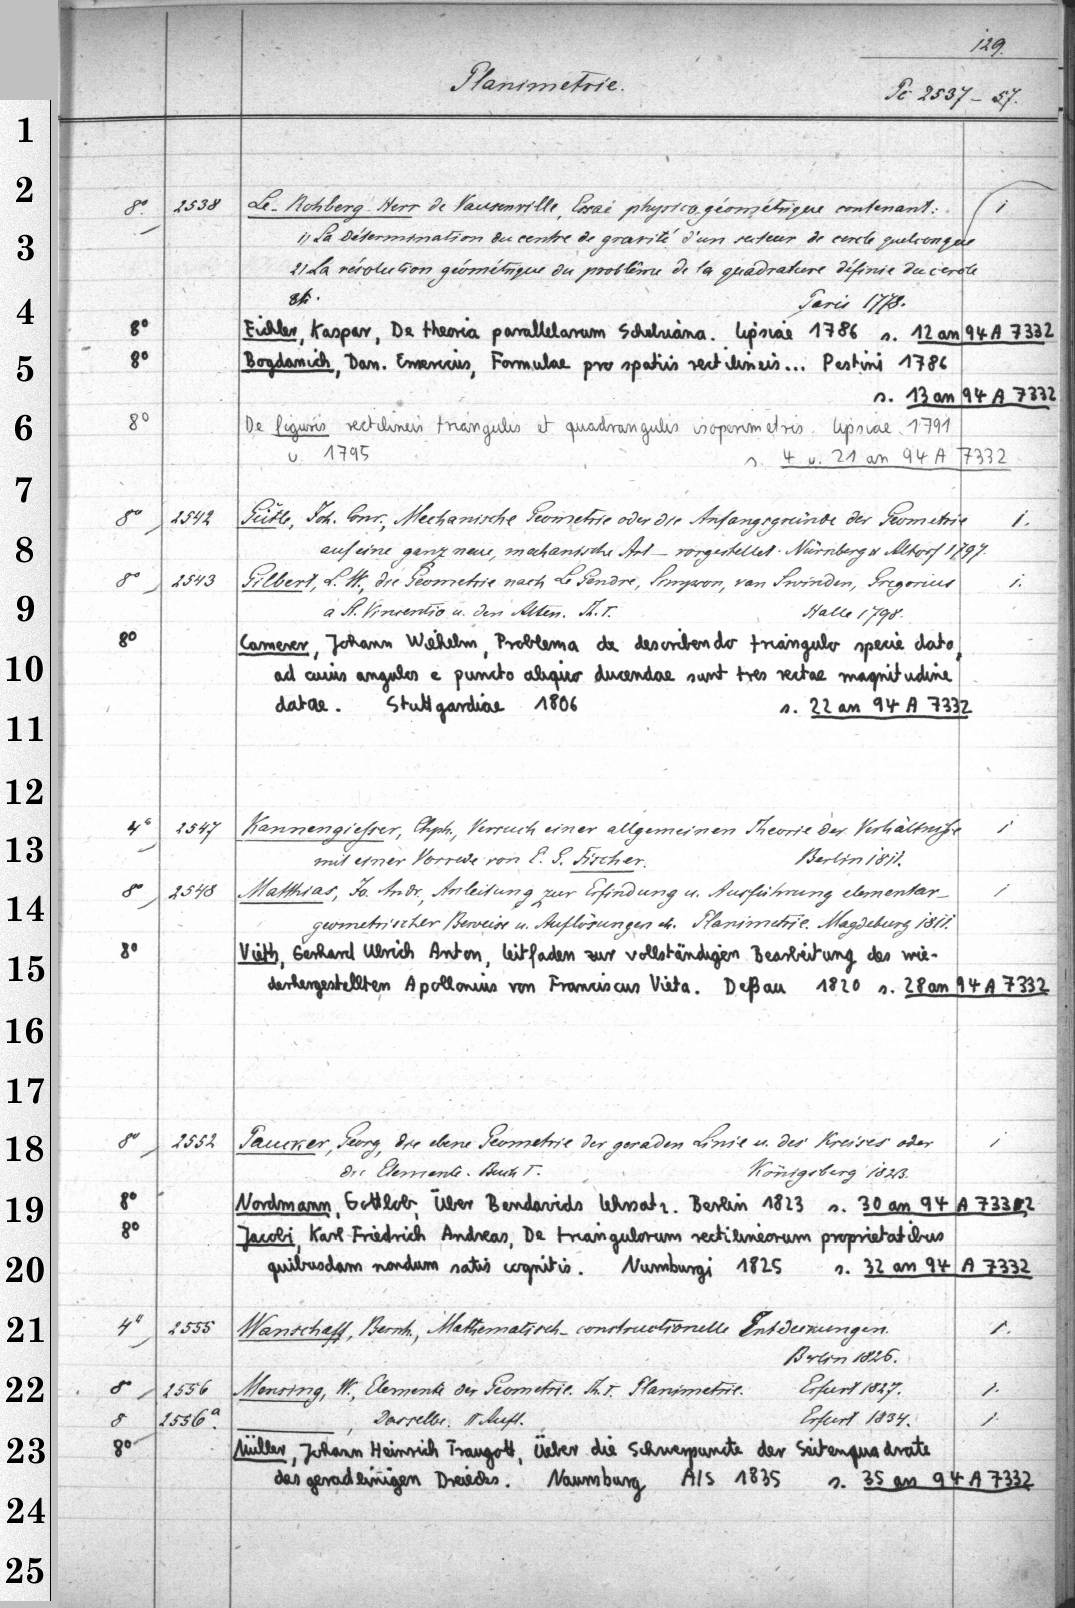 129.
Planimetrie.
Pc 2537-57.
1
2
8º. 2538 Le-Rohberg-Herr de Vausenville, Essai physico-géométrique contenant: 1
3
1) La Détermination du centre de gravité d'un secteur de cercle quelconque
2) La résolution géométrique du problême de la quadrature définie du cercle
4
Paris 1778.
8º Eichler, Kaspar, De theoria parallelarum Schelviana. Lipsiae 1786 s. 12 an 94 A 7332
5
8º Bogdanich, Dan. Emericus, Formulae pro spatiis rectilineis... Pestini 1786
s. 13 an 94 A 7332
6
8º De figuris rectilineis triangulis et quadrangulis isoperimetris. Lipsiae 1791
u. 1795 s. 4 u. 21 an 94 A 7332
7
8º 2542 Gütle, Joh. Conr., Mechanische Geometrie oder die Anfangsgründe der Geometrie 1.
8
auf eine ganz neue, mechanische Art vorgestellet. Nürnberg u Altdorf 1797.
8º 2543 Gilbert, L. W., die Geometrie nach Le Gendre, Simpson, van Swinden, Gregorius 1.
9
a St. Vincentio u. den Alten. Th. I. Halle 1798.
8º Camerer, Johann Wilhelm, Problema de describendo triangulo specie dato,
10
ad cuius angulos e puncto aliquo ducendae sunt tres rectae magnitudine
datae. Stuttgardiae 1806 s. 22 an 94 A 7332
11
12
4º 2547 Kannengiesser, Chph., Versuch einer allgemeinen Theorie der Verhältnisse 1
13
mit einer Vorrede von E. G. Fischer. Berlin 1811.
8º 2548 Matthias, Jo. Andr., Anleitung zur Erfindung u. Ausführung elementar- 1
14
geometrischer Beweise u. Auflösungen d. Planimetrie. Magdeburg 1811.
8º Vieth, Gerhard Ulrich Anton, Leitfaden zur vollständigen Bearbeitung des wie-
15
derhergestellten Apollonius von Franciscus Vieta. Deßau 1820 s. 28 an 94 A 7332
16
17
8º 2552 Paucker, Georg, die ebene Geometrie der geraden Linie u. des Kreises oder 1
18
die Elemente. Buch I. Königsberg 1823.
8º Nordmann, Gottlob, Über Bendavids Lehrsatz. Berlin 1823 s. 30 an 94 A 7332
19
8º Jacobi, Karl Friedrich Andreas, De triangulorum rectilineorum proprietatibus
20
quibusdam nondum satis cognitis. Numburgi 1825 s. 32 an 94 A 7332
21
4º 2555 Wanschaff, Bernh., Mathematisch-constructionelle Entdeckungen. 1.
Berlin 1826.
22
8 2556 Mensing, W., Elemente der Geometrie. Th. I. Planimetrie. Erfurt 1827. 1.
8 2556a. Dasselbe. II Aufl. Erfurt 1834. 1
23
8º Müller, Johann Heinrich Traugott, Ueber die Schwerpuncte der Seitenquadrate
des geradlinigen Dreiecks. Naumburg A/S 1835 s. 35 an 94 A 7332
24
25